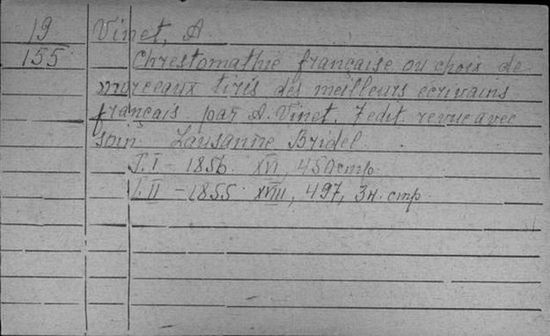 19
155
Vinet, A
Chrestomathie française ou choix de
morceaux tirés des meilleurs écrivains
français par A. Vinet. 7 edit. revue avec
soin Lausanne Bridel
T. I - 1856 XVI, 450 стр
T. II - 1855 XVIII, 497, 3н. стр.